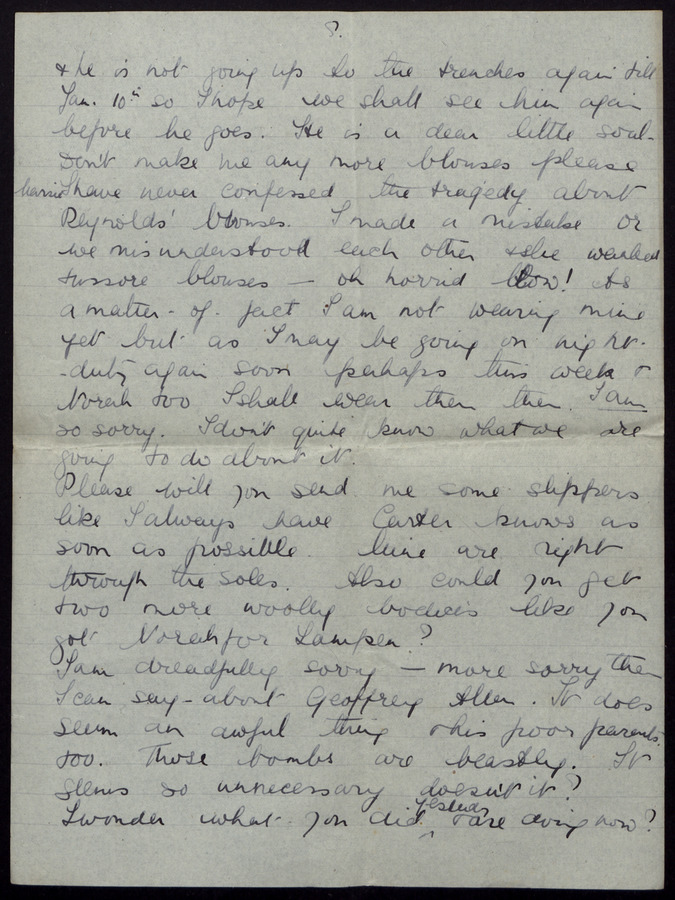 8.
& he is not going up to the trenches again till
Jan. 10th so I hope we shall see him again
before he goes. He is a dear little soul.
Don't make me any more blouses please
I have never confessed the tragedy about
Reynolds' blouses. I made a mistake or
we misunderstood each other & she wanted
tussore blouses — oh horrid blow! As
a matter - of - fact I am not wearing mine
yet but as I may be going on night-
-duty again soon perhaps this week &
Norah too I shall wear them then. I am
so sorry. I don't quite know what we are
going to do about it.
Please will you send me some slippers
like I always have Carter knows as
soon as possible. Mine are right
through the soles. Also could you get
two more woolly bodices like you
got Norah for Lampen?
I am dreadfully sorry — more sorry then
I can say - about Geoffrey Allen. It does
seem an awful thing & his poor parents
too. Those bombs are beastly. It
seems so unnecessary doesn't it?
I wonder what you did yesterday & are doing now?